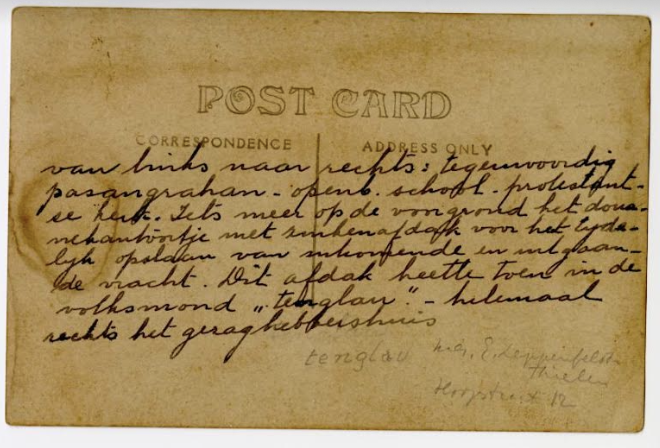 POST CARD
CORRESPONDENCE
ADDRESS ONLY
van links naar rechts: tegenwoordig
pasangrahan - openb. school - protestant-
se kerk. Iets meer op de voorgrond het doua-
nekantoortje met zinkenafdak voor het tyde-
lyk opslaan van inkomende en uitgaan-
de vracht. Dit afdak heette toen in de
volksmond "tenglau". - helemaal
rechts het gezaghebbershuis
tenglau
Thielen
12